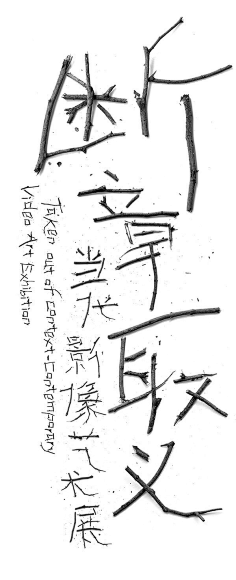 断章取义
当代影像艺术展
Taken out of context-contemporary
Video Art Exhibition